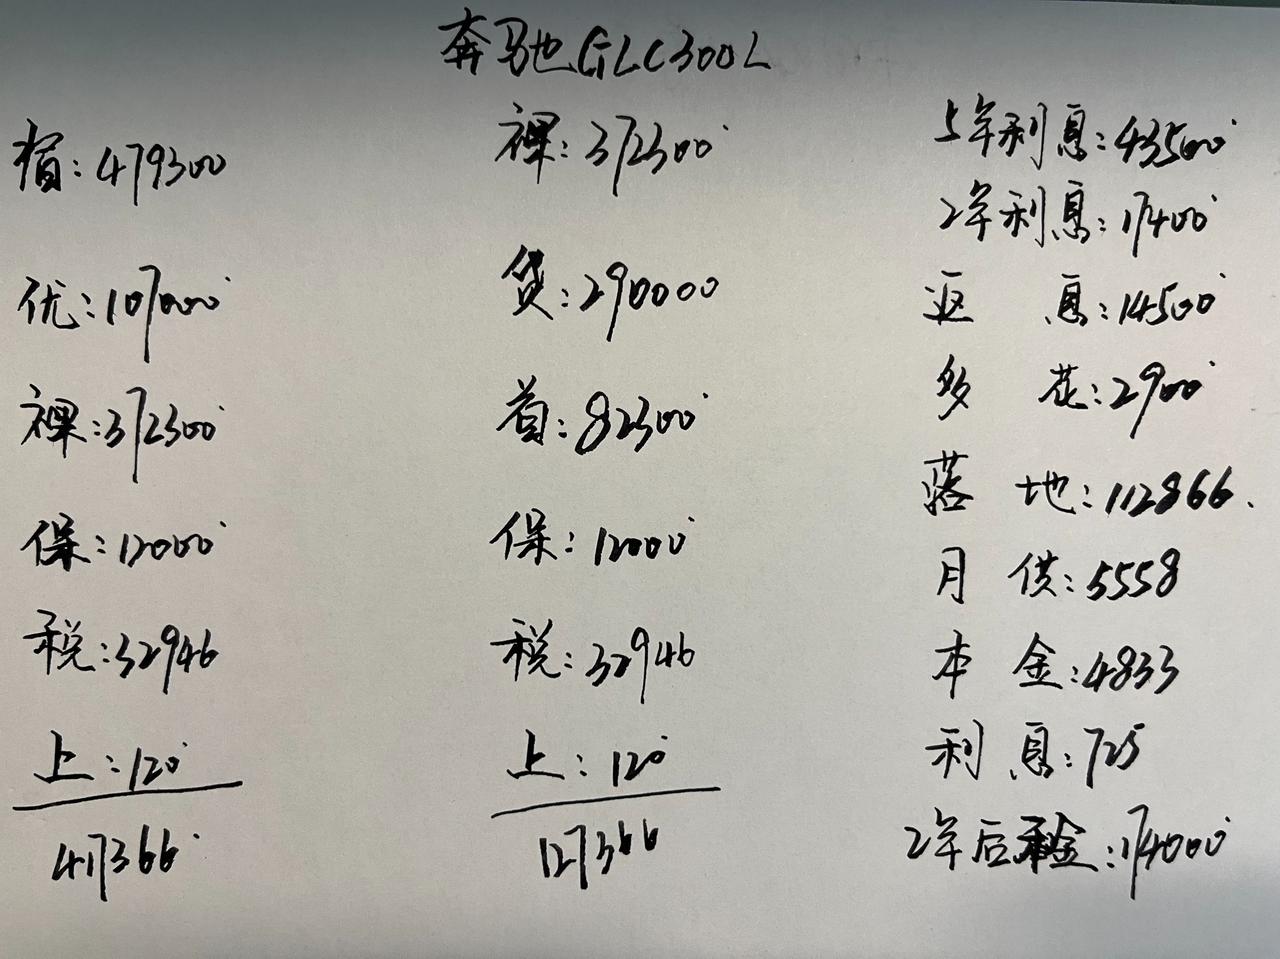 奔驰GLC300L
指:479300
优:107000
裸:372300
保:12000
税:32946
上:120
417366
裸:372300
贷:290000
首:82300
保:12000
税:32946
上:120
127366
5年利息:43500
2年利息:17400
返息:14500
多花:2900
落地:112866.
月供:5558
本金:4833
利息:725
2年后本金:174000